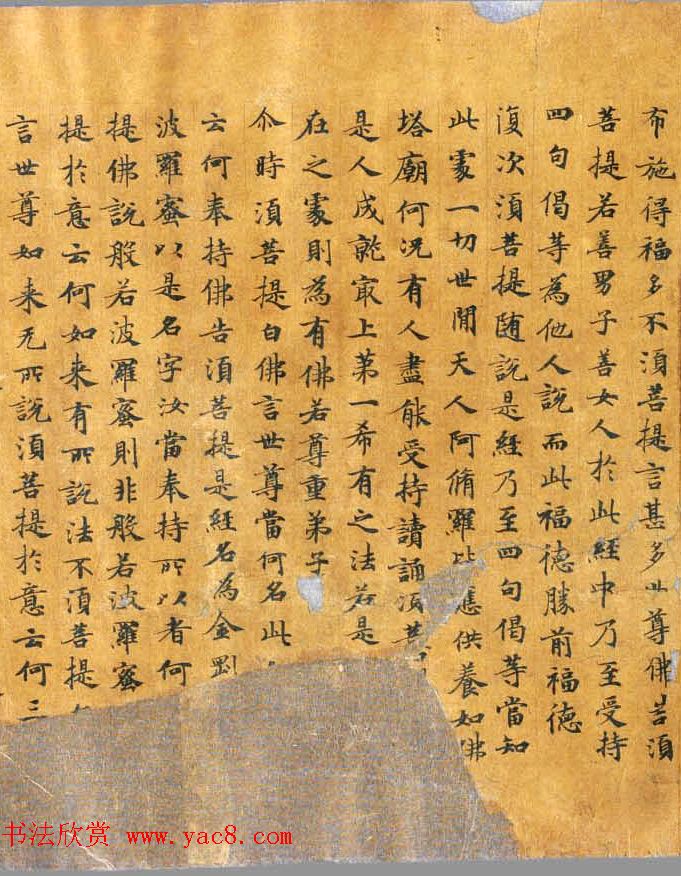 布施得福多不湏菩提言甚多世尊佛告湏
菩提若善男子善女人於此經中乃至受持
四句偈等為他人說而此福德勝前福德
復次湏菩提随說是經乃至四句偈等當知
此䖏一切世間天人阿脩羅皆應供養如佛
塔廟何況有人盡能受持讀誦湏菩
是人成就冣上第一希有之法若是
在之䖏則為有佛若尊重弟子
尒時湏菩提白佛言世尊當何名此
云何奉持佛告湏菩提是經名為金剛
波羅蜜以是名字汝當奉持所以者何
提佛說般若波羅蜜則非般若波羅蜜
提於意云何如来有所說法不湏菩提
言世尊如来无所說湏菩提於意云何三
书法欣赏 www.yac8.com